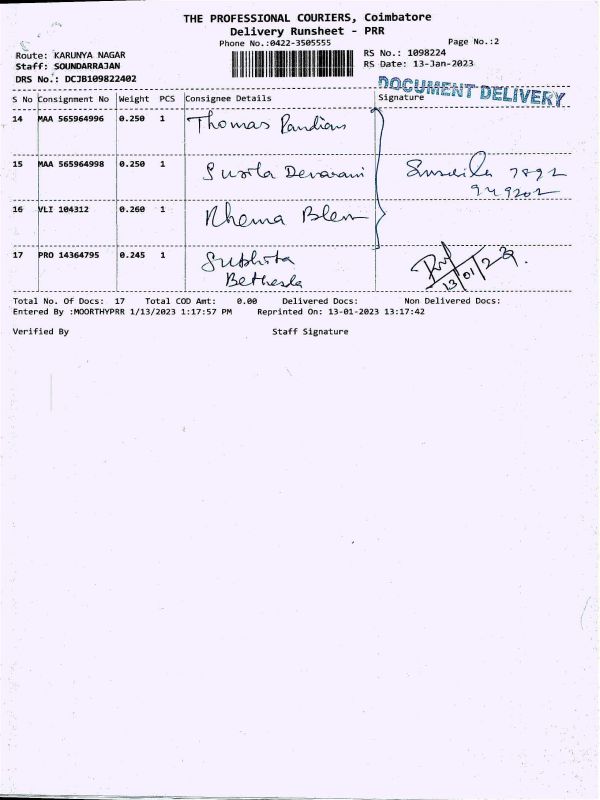 THE PROFESSIONAL COURIERS, Coimbatore
Delivery Runsheet - PRR
Phone No.:0422-3505555
Page No.:2
Route: KARUNYA NAGAR
RS No.: 1098224
Staff: SOUNDARRAJAN
RS Date: 13-Jan-2023
DRS No.: DCJB109822402
DOCUMENT DELIVERY
S No Consignment No Weight PCS Consignee Details Signature
14 MAA 565964996 0.250 1 Thomas Pandian
15 MAA 565964998 0.250 1 Devarani
16 VLI 104312 0.260 1 Rhema
17 PRO 14364795 0.245 1
Bethesda
13/01/23.
Total No. Of Docs: 17 Total COD Amt: 0.00 Delivered Docs: Non Delivered Docs:
Entered By :MOORTHYPRR 1/13/2023 1:17:57 PM Reprinted On: 13-01-2023 13:17:42
Verified By Staff Signature